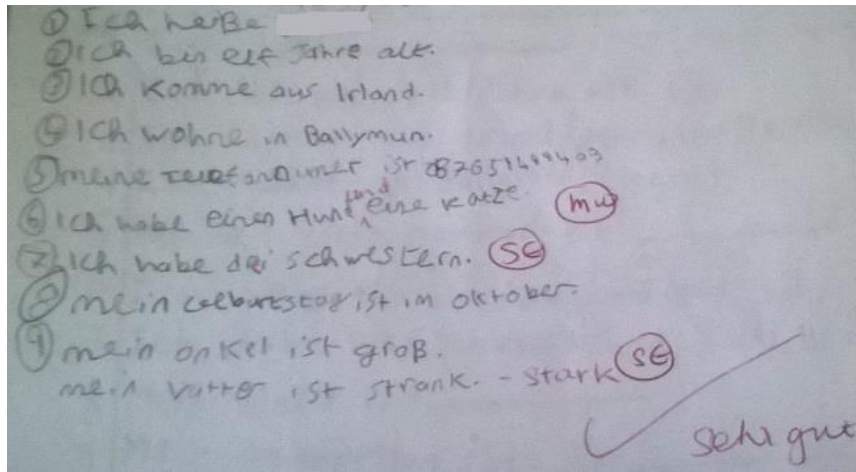 ① Ich heiße
② Ich bin elf Jahre alt.
③ Ich komme aus Irland.
④ Ich wohne in Ballymun.
⑤ meine ist
⑥ Ich habe einen Hunt, und eine katze. mw
⑦ Ich habe drei schwestern. SE
⑧ mein Geburtstag ist im oktober.
⑨ mein onkel ist groß.
mein vatter ist strank. - stark SE
sehr gut